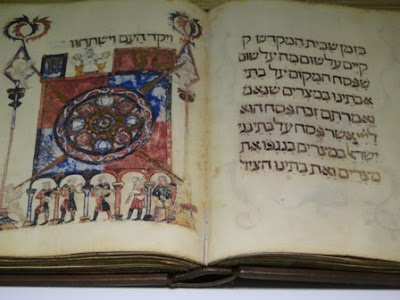 בזמן שבית המקדש ק
קיים על שום מה על שום
שפסח המקום על בתי
אבתינו במצרים שנאמ
ואמרתם זבח פסח הוא
ליי אשר פסח על בתי בני
ישראל במצרים בנגפו את
מצרים ואת בתינו הציל
ויקד העם וישתחוו